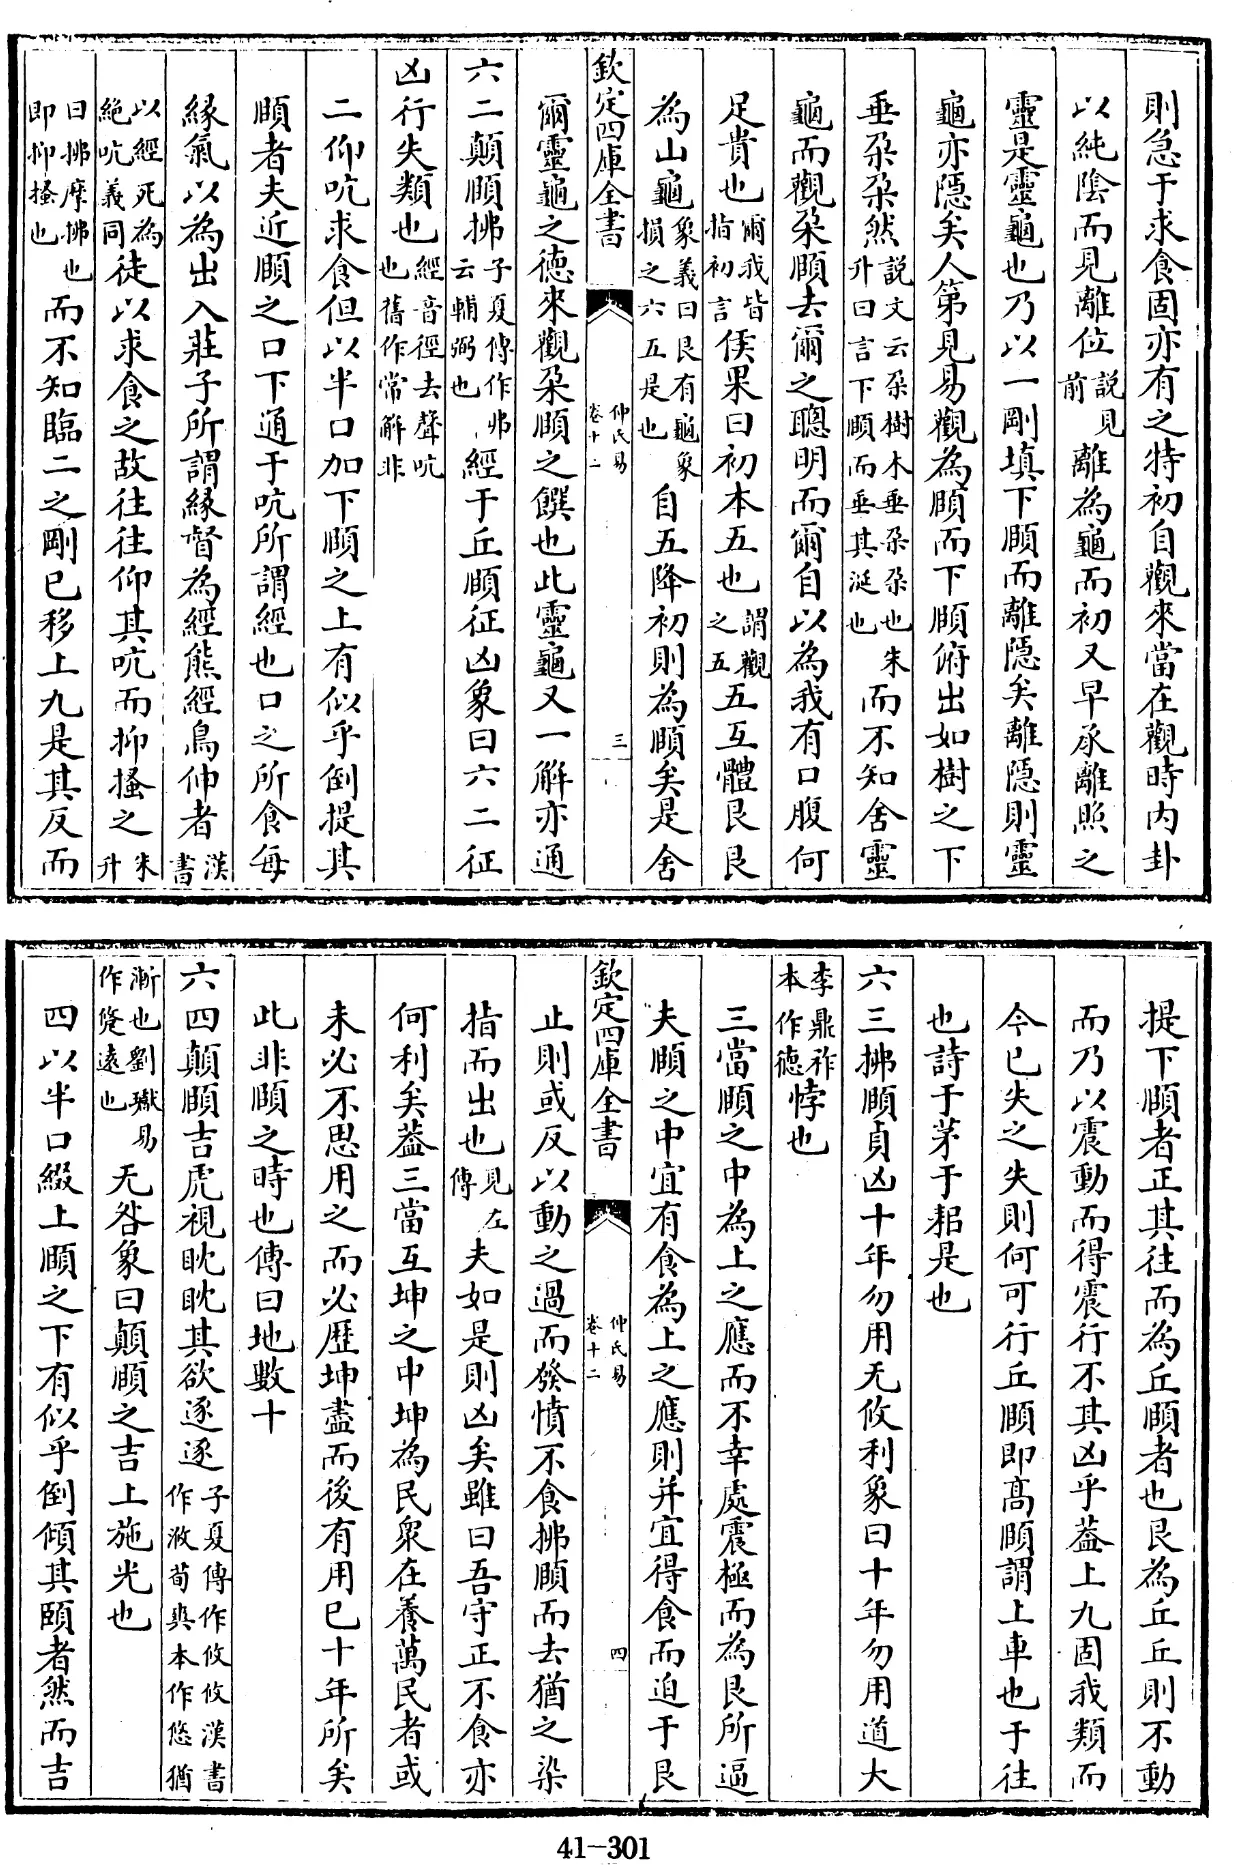 則急于求食固亦有之特初自觀來當在觀時内卦
以純陰而見離位說見前離為龜而初又早承離照之
靈是靈龜也乃以一剛填下頤而離隱矣離隱則靈
龜亦隱矣人第見易觀為頤而下頤俯出如樹之下
垂朶朶然說文云朶樹木垂朶朶也朱升曰言下頤而垂其涎也而不知舍靈
龜而觀朶頤去爾之聰明而爾自以為我有口腹何
足貴也爾我皆指初言侯果曰初本五也謂觀之五五互體艮艮
為山龜象義曰艮有龜象損之六五是也自五降初則為頤矣是舍
欽定四庫全書
仲氏易
卷十二
三
爾靈龜之德來觀朶頤之饌也此靈龜又一解亦通
六二顛頤拂子夏傳作弗云輔弼也經于丘頤征凶象曰六二征
凶行失類也經音徑去聲吭也舊作常解非
二仰吭求食但以半口加下頤之上有似乎倒提其
頤者夫近頤之口下通于吭所謂經也口之所食每
緣氣以為出入莊子所謂緣督為經熊經鳥伸者漢書
以經死為絶吭義同徒以求食之故往往仰其吭而抑搔之朱升
曰拂摩拂也即抑搔也而不知臨二之剛已移上九是其反而
提下頤者正其往而為丘頤者也艮為丘丘則不動
而乃以震動而得震行不其凶乎葢上九固我類而
今已失之失則何可行丘頤即高頤謂上車也于往
也詩于茅于耜是也
六三拂頤貞凶十年勿用无攸利象曰十年勿用道大
李鼎祚本作德悖也
三當頤之中為上之應而不幸處震極而為艮所逼
夫頤之中宜有食為上之應則并宜得食而迫于艮
欽定四庫全書
仲氏易
卷十二
四
止則或反以動之過而發憤不食拂頤而去猶之染
指而出也見左傳夫如是則凶矣雖曰吾守正不食亦
何利矣葢三當互坤之中坤為民衆在養萬民者或
未必不思用之而必歴坤盡而後有用已十年所矣
此非頤之時也傳曰地數十
六四顛頤吉虎視眈眈其欲逐逐子夏傳作攸攸漢書作浟荀爽本作悠猶
漸也劉瓛易作䠱遠也无咎象曰顛頤之吉上施光也
四以半口綴上頤之下有似乎倒傾其頤者然而吉
41-301